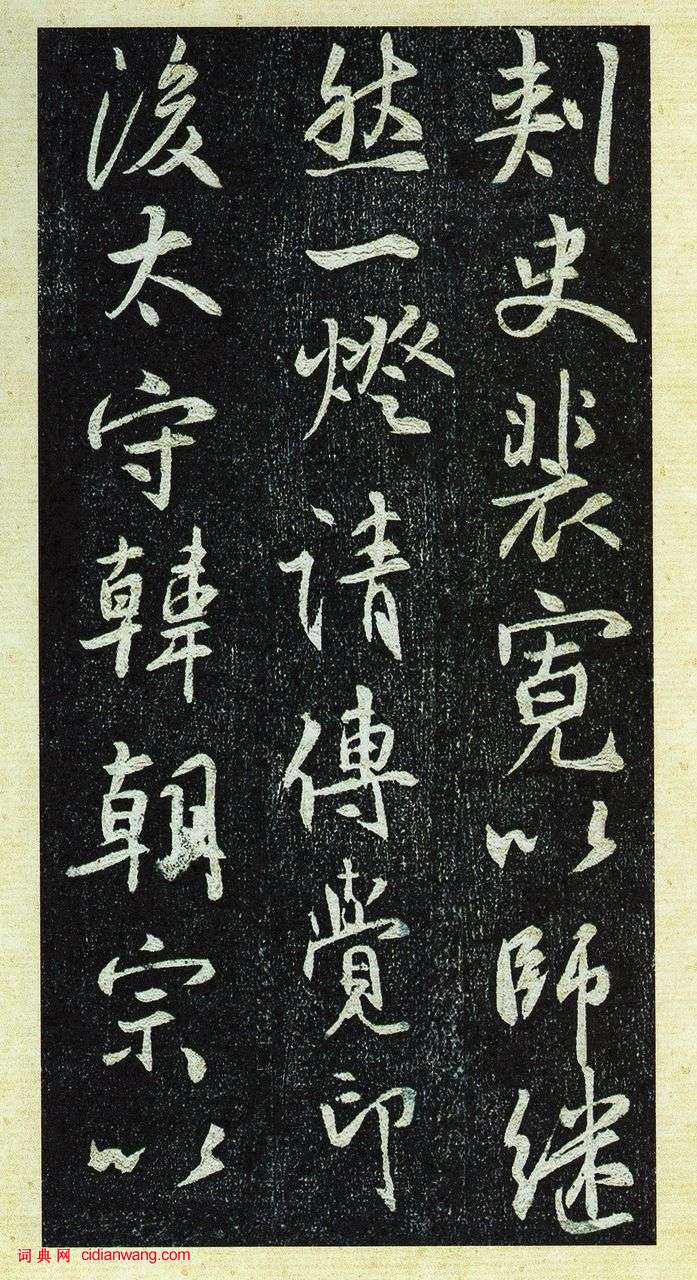 刺史裴寬以師继
然一燈请傳覺印
後太守韓朝宗以
词典网 cidianwang.com